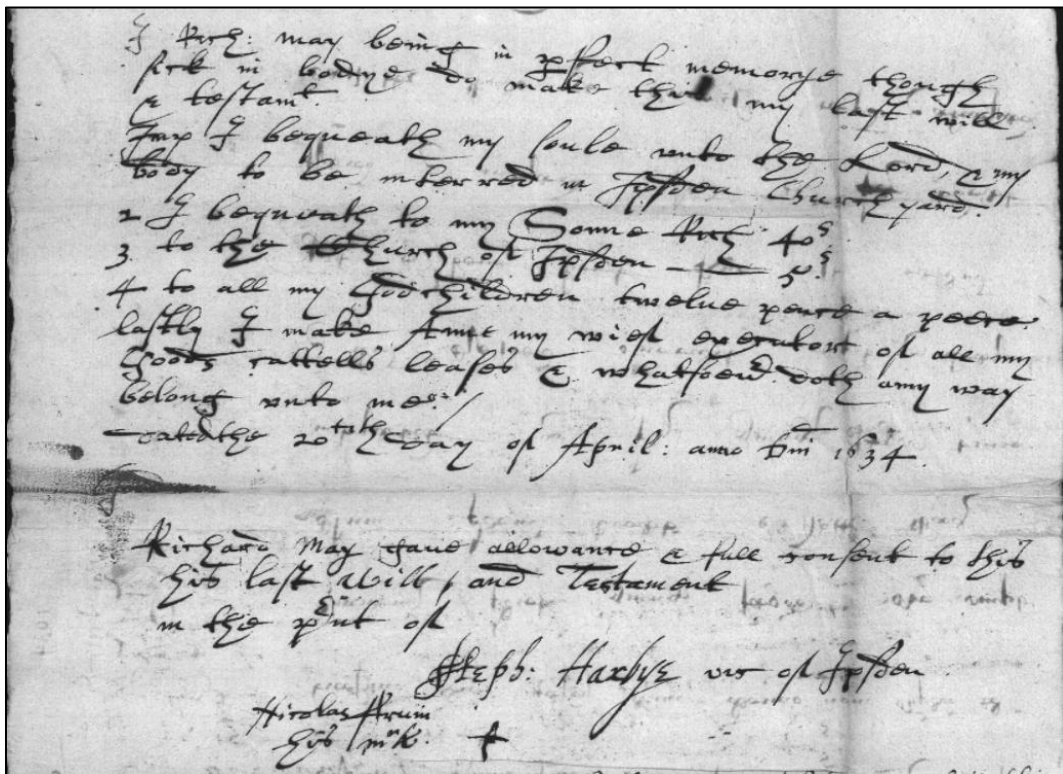 I Rich: may being in pfect memorye though
sick in bodye do make this my last will
& testamt.
Imp I bequeath my soule unto the Lord, & my
body to be interred in Ipsden Church yard.
2 I bequeath to my Sonne Rich 40s
3 to the Church of Ipsden — 5s
4 to all my Godchildren twelve pence a peece.
lastly I make my wief executor of all my
Goods cattells leases & whatsoevr doth any way
belong unto mee /
dated the 20th day of April: anno dni 1634
Richard May gave allowance & full consent to this
his last Will, and Testament
in the psnt of
Steph: vic of Ipsden
Nicolas ffruin
his mrk.